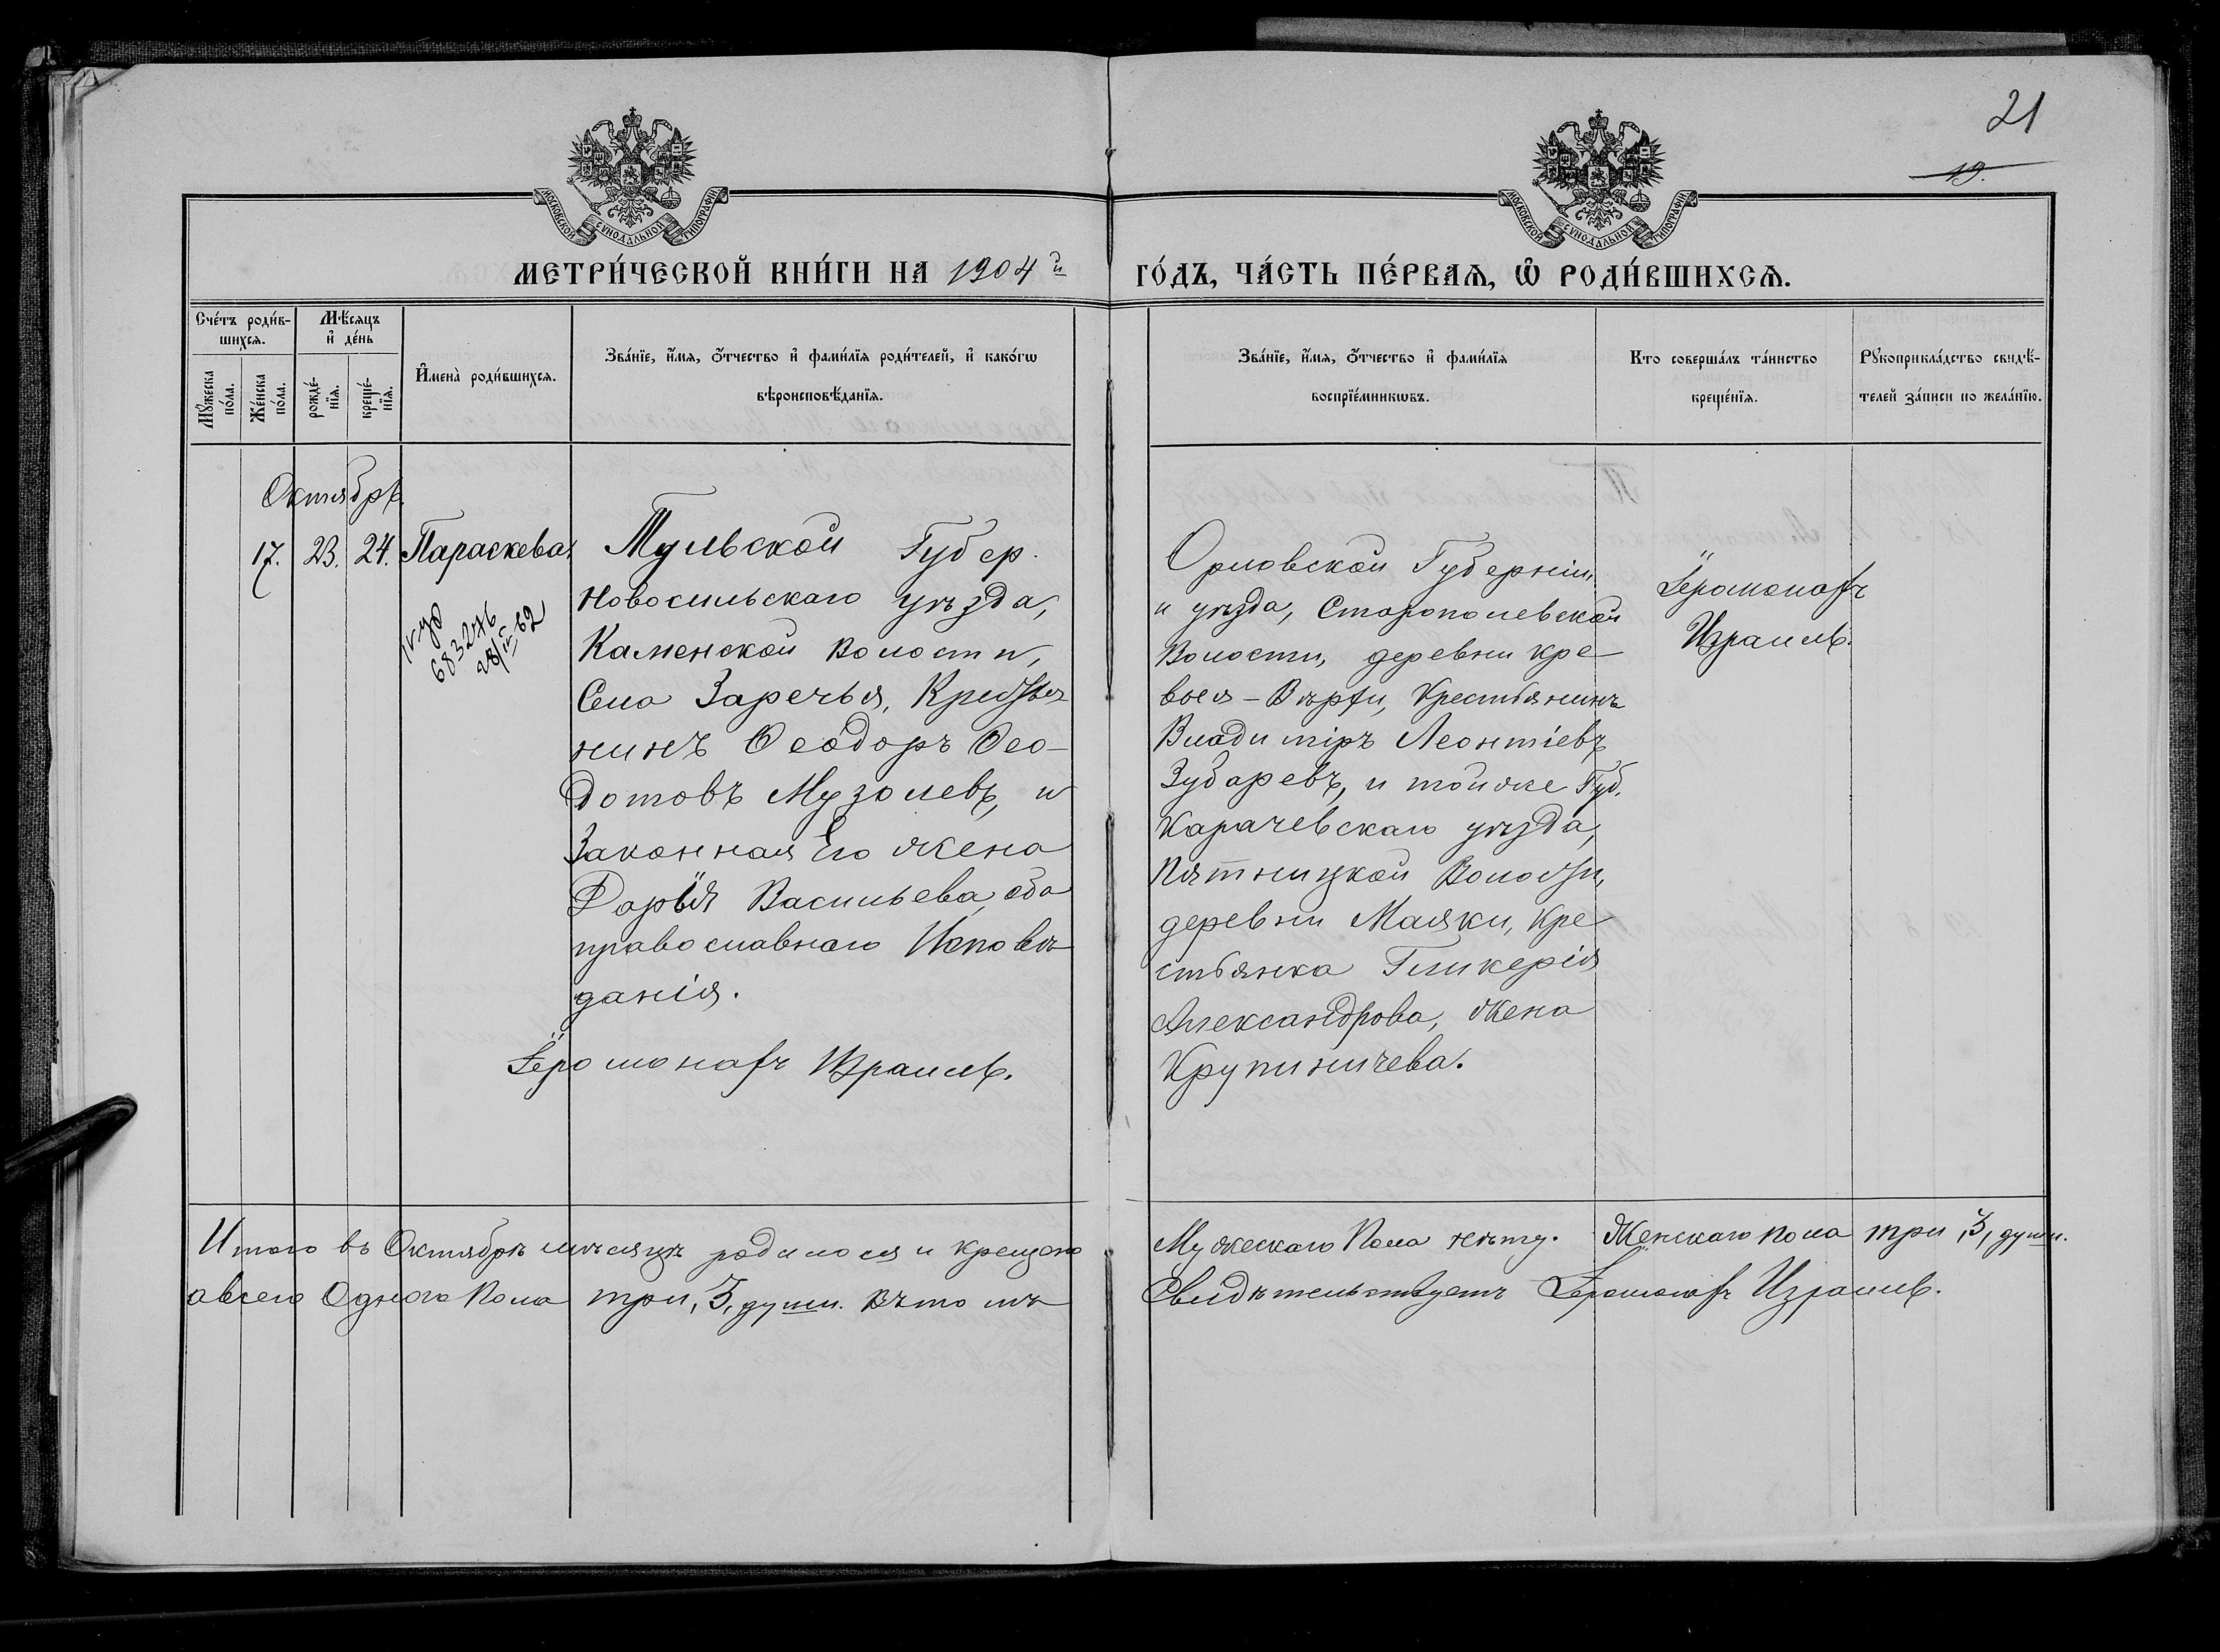 21
19.
МОСКОВСКОЙ СѴНОДАЛЬНОЙ ТИПОГРАФІИ
МОСКОВСКОЙ СѴНОДАЛЬНОЙ ТИПОГРАФІИ
МЕТРИ́ЧЕСКОЙ КНИ́ГИ НА 1904й
ГО́ДЪ, ЧА́СТЬ ПЕ́РВАѦ, Ѽ РОДИ́ВШИХСѦ.
Сче́тъ роди́в-
шихсѧ.
Мꙋ́жеска
по́ла.
Же́нска
по́ла.
Мѣ́сѧцъ
и҆ де́нь
рожде́-
нїѧ.
креще́-
нїѧ.
И҆мена̀ роди́вшихсѧ.
Зва́нїе, и҆́мѧ, ѻ҆́тчество и҆ фами́лїѧ роди́телей, и҆ како́гѡ
вѣроисповѣ́данїѧ.
Зва́нїе, и҆́мѧ, ѻ҆́тчество и҆ фами́лїѧ
воспрїе́мникѡвъ.
Кто соверша́лъ та́инство
креще́нїѧ.
Рꙋкоприкла́дство свидѣ́-
телей за́писи по жела́нїю.
Октябрь.
17. 23. 24. Параскева.
683276
Тульской Губер.
Новосильскаго уѣзда,
Каменской Волости,
Села Заречья, Крестья
нинъ Ѳеодоръ Ѳео-
дотовъ Музолевъ, и
Законная Его жена
Дарья Васильева, оба
православнаго Исповѣ-
данія.
Іеромонахъ Израиль.
Орловской Губерніи,
и уѣзда, Старополевской
Волости, деревни Кре-
выя-Верхи, Крестьянинъ
Владиміръ Леонтіевъ
Зубаревъ, и тойже Губ.
Карачевскаго уѣзда,
Пятницкой Волости,
деревни Маяки, Кре
стьянка Гликерія
Александрова, жена
Крупиничева.
Іеромонахъ
Израиль.
Итого въ Октябрѣ мѣсяцѣ родилося и крещено
а всего Одного Пола три, 3, души. Въ томъ
Мужескаго Пола нѣту. Женскаго пола три, 3, души.
Свидѣтельствуетъ Іеромонахъ Израиль.